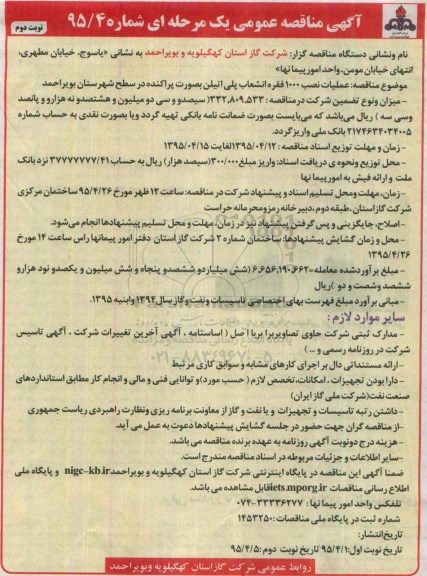 آگهی مناقصه عمومی یک مرحله ای شماره ۹۵/۴
نوبت دوم
نام ونشانی دستگاه مناقصه گزار: شرکت گاز استان کهگیلویه و بویراحمد به نشانی «یاسوج، خیابان مطهری،
انتهای خیابان مومن، واحد امور پیمانها»
موضوع مناقصه: عملیات نصب ۱۰۰۰ فقره انشعاب پلی اتیلن بصورت پراکنده در سطح شهرستان بویراحمد
- میزان ونوع تضمین شرکت در مناقصه: ۳۳۲,۸۰۹,۵۳۳ (سیصدو سی دو میلیون و هشتصدو نه هزارو پانصد
وسی سه ) ریال می‌باشد که می‌بایست بصورت ضمانت نامه بانکی تهیه گردد ویا بصورت نقدی به حساب شماره
۲۱۷۴۶۳۴۰۳۴۰۰۵ بانک ملی واریز گردد.
- زمان و مهلت توزیع اسناد مناقصه : ۱۳۹۵/۰۴/۱۲ لغایت ۱۳۹۵/۰۴/۱۵
- محل توزیع ونحوه ی دریافت اسناد: واریز مبلغ ۳۰۰/۰۰۰ (سیصد هزار) ریال به حساب ۳۷۷۷۷۷۷۷/۴۱ نزد بانک
ملت و ارائه فیش به امور پیمانها
- زمان، مهلت ومحل تسلیم اسناد و پیشنهاد شرکت در مناقصه: ساعت ۱۲ ظهر مورخ ۹۵/۴/۲۶ ساختمان مرکزی
شرکت گاز استان ،طبقه دوم ،دبیرخانه رمز و محرمانه حراست
- اصلاح، جایگزینی و پس گرفتن پیشنهاد نیز در زمان، مهلت و محل تسلیم پیشنهادها انجام می‌شود.
- محل و زمان گشایش پیشنهادها: ساختمان شماره ۲ شرکت گاز استان دفتر امور پیمانها راس ساعت ۱۴ مورخ
۱۳۹۵/۴/۲۶
- مبلغ برآوردشده معامله=۶,۶۵۶,۱۹۰,۶۶۲ (شش میلیاردو ششصدو پنجاه و شش میلیون و یکصدو نود هزارو
ششصد وشصت و دو )ریال
- مبانی برآورد مبلغ فهرست بهای اختصاصی تاسیسات ونفت وگاز سال ۱۳۹۴ وابنیه ۱۳۹۵
سایر موارد لازم :
- مدارک ثبتی شرکت حاوی تصاویر برابر با اصل ( اساسنامه ، آگهی آخرین تغییرات شرکت ، آگهی تاسیس
شرکت در روزنامه رسمی و ...)
- ارائه مستنداتی دال بر اجرای کارهای مشابه و سوابق کاری مرتبط
- دارا بودن تجهیزات ، امکانات، تخصص لازم ( حسب مورد) و توانایی فنی و مالی و انجام کار مطابق استانداردهای
صنعت نفت(شرکت ملی گاز ایران)
- داشتن رتبه تاسیسات و تجهیزات و یا نفت و گاز از معاونت برنامه ریزی ونظارت راهبردی ریاست جمهوری
-از مناقصه گران جهت حضور در جلسه گشایش پیشنهادها دعوت به عمل می آید.
- هزینه درج دونوبت آگهی روزنامه به عهده برنده مناقصه می باشد.
-سایر اطلاعات و جزئیات مربوطه در اسناد مناقصه مندرج است.
ضمنا آگهی این مناقصه در پایگاه اینترنتی شرکت گاز استان کهگیلویه و بویراحمد nigc-kb.ir و پایگاه ملی
اطلاع رسانی مناقصات iets.mporg.ir قابل مشاهده می باشد.
تلفکس واحد امور پیمانها : ۳۳۳۳۶۲۷۷-۰۷۴
شماره ثبت در پایگاه ملی مناقصات: ۱۴۵۳۲۵۰
تاریخ انتشار:
تاریخ نوبت اول: ۹۵/۴/۱ تاریخ نوبت دوم :۹۵/۴/۵
روابط عمومی شرکت گاز استان کهگیلویه وبویراحمد